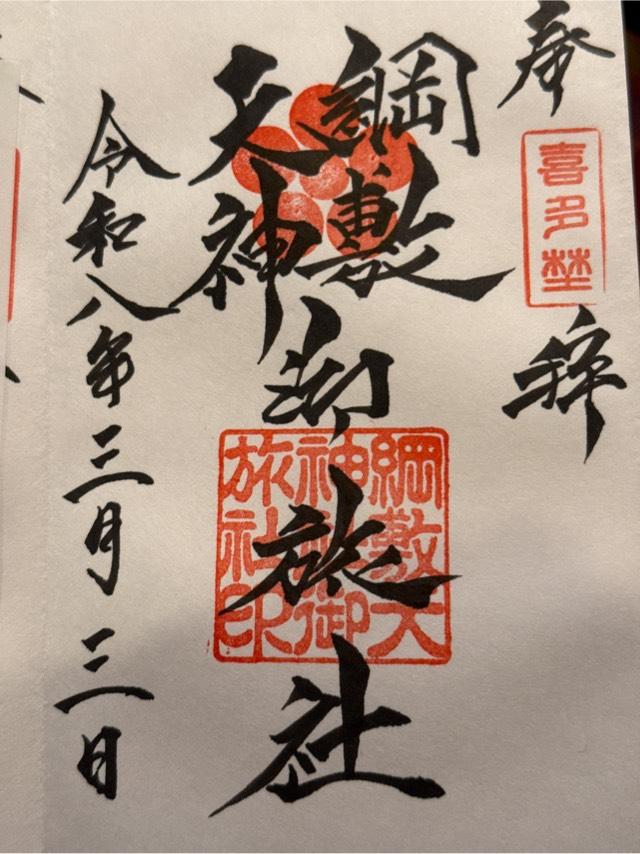 奉拝
喜多埜
綱敷
天神
御旅社
綱敷天
神社御
旅社印
令和八年三月三日